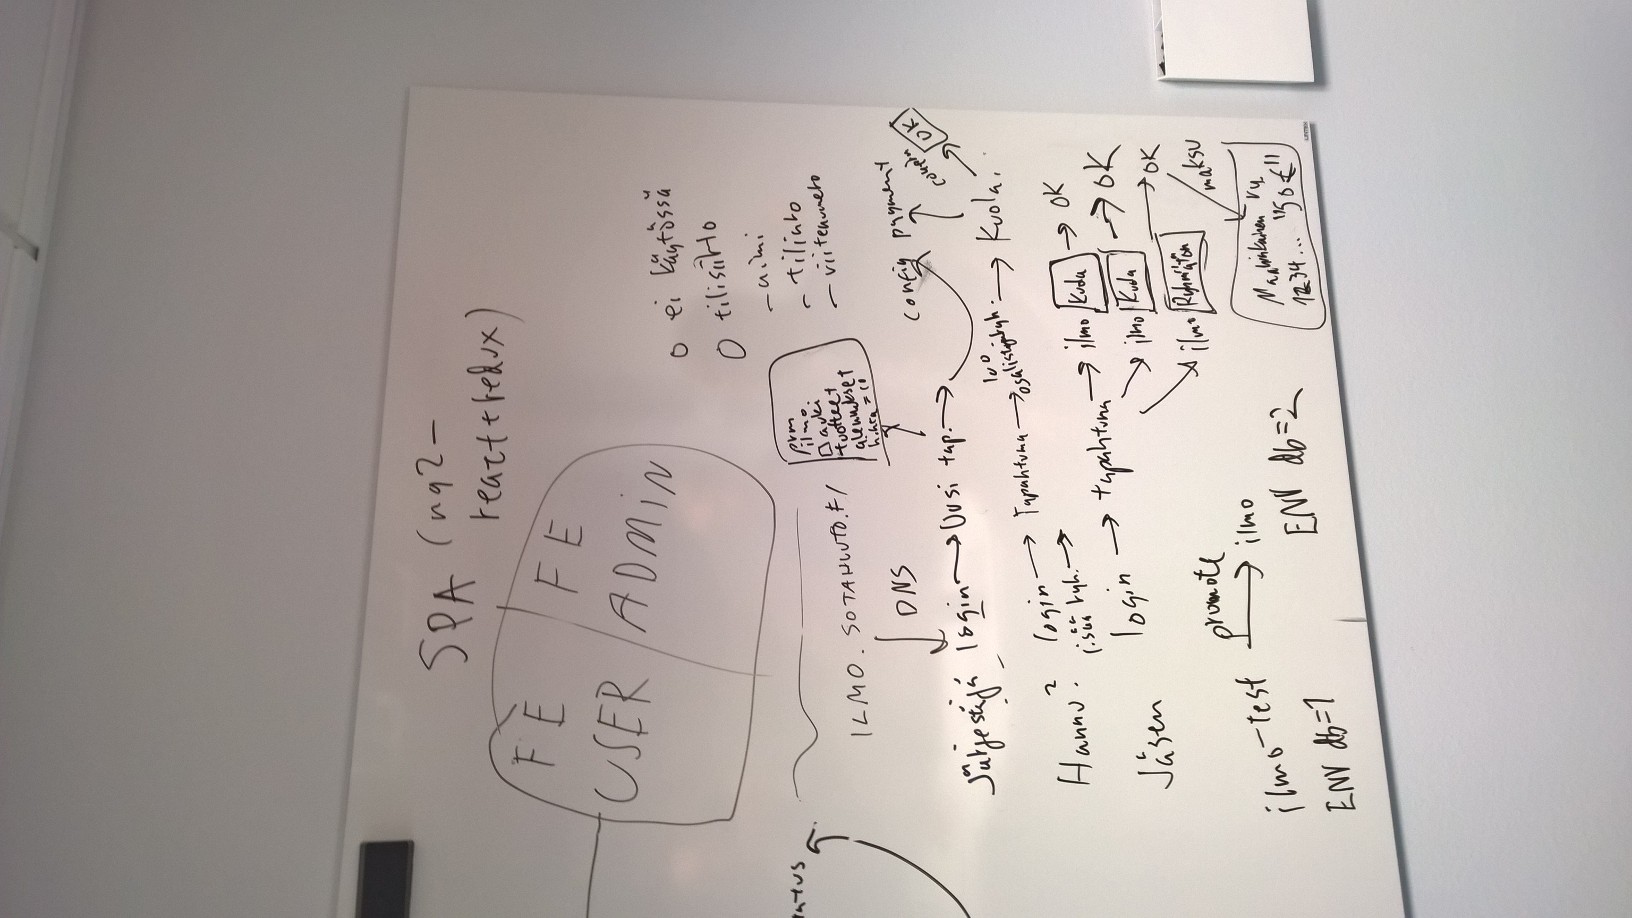 SPA (ng2-
react+redux)
FE
USER
FE
ADMIN
o ei käytössä
o tilisiirto
- nimi
- tilinro
- viitenumero
ILMO.SOTAHUUTO.FI/
pvm
ilmo
auki
tuotteet
alennukset
hinta = 10
DNS
Järjestäjä login → Uusi tap. →
config payment
Hannu? login → Tapahtuma → luo
osallistujaryh. → Kuola.
OK
lisää ryh. →
Jäsen login → tapahtuma → ilmo Kuola → OK
ilmo Kuola → OK
ilmo Ryhmätön → OK
maksu
ry
1234... "50€"
ilmo-test promote → ilmo
ENV db=1
ENV db=2